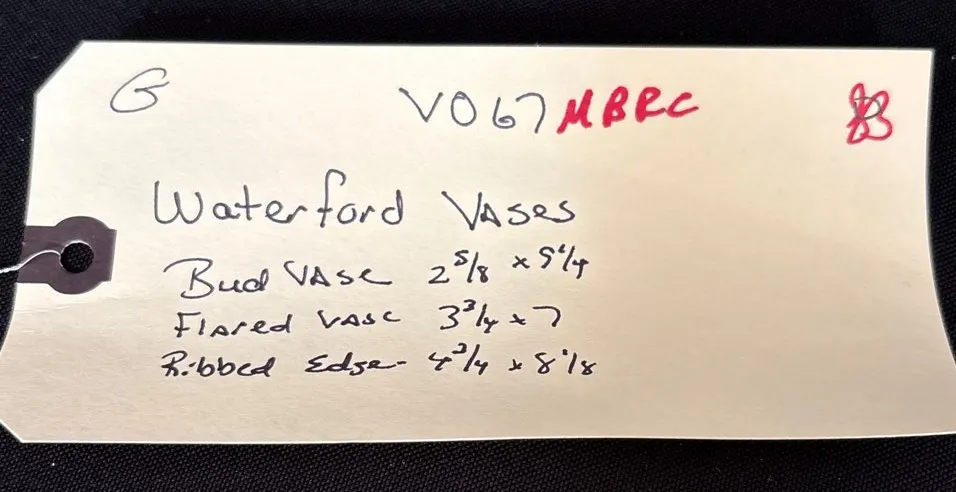 G VO67 MBRC
Waterford Vases
Bud Vase 2 5/8 x 9 1/4
Flared Vase 3 3/4 x 7
Ribbed Edge- 4 3/4 x 8 1/8